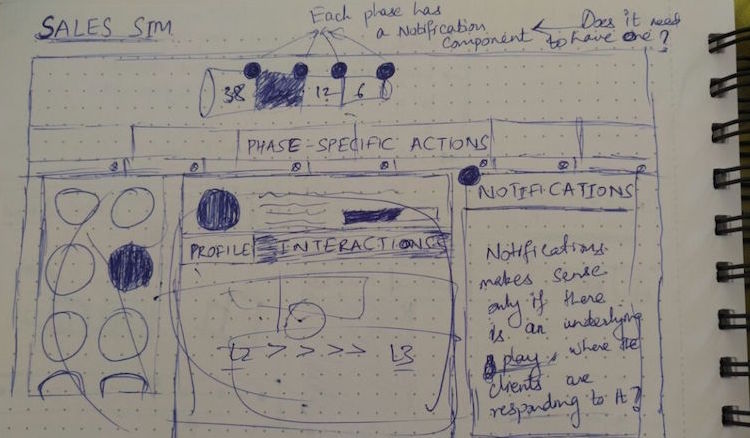 SALES SIM
Each phase has
a Notification
component
Does it need
to have one?
38 12 6
PHASE-SPECIFIC ACTIONS
PROFILE INTERACTIONS
NOTIFICATIONS
Notifications
makes sense
only if there
is an underlying
play, where the
clients are
responding to it?
L2 > > >> L3